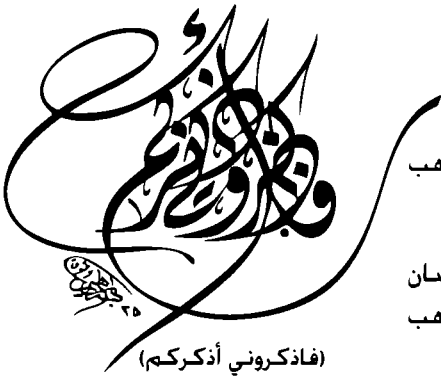 فاذكروني أذكركم
٢٥
هب
هب
(فاذكروني أذكركم)